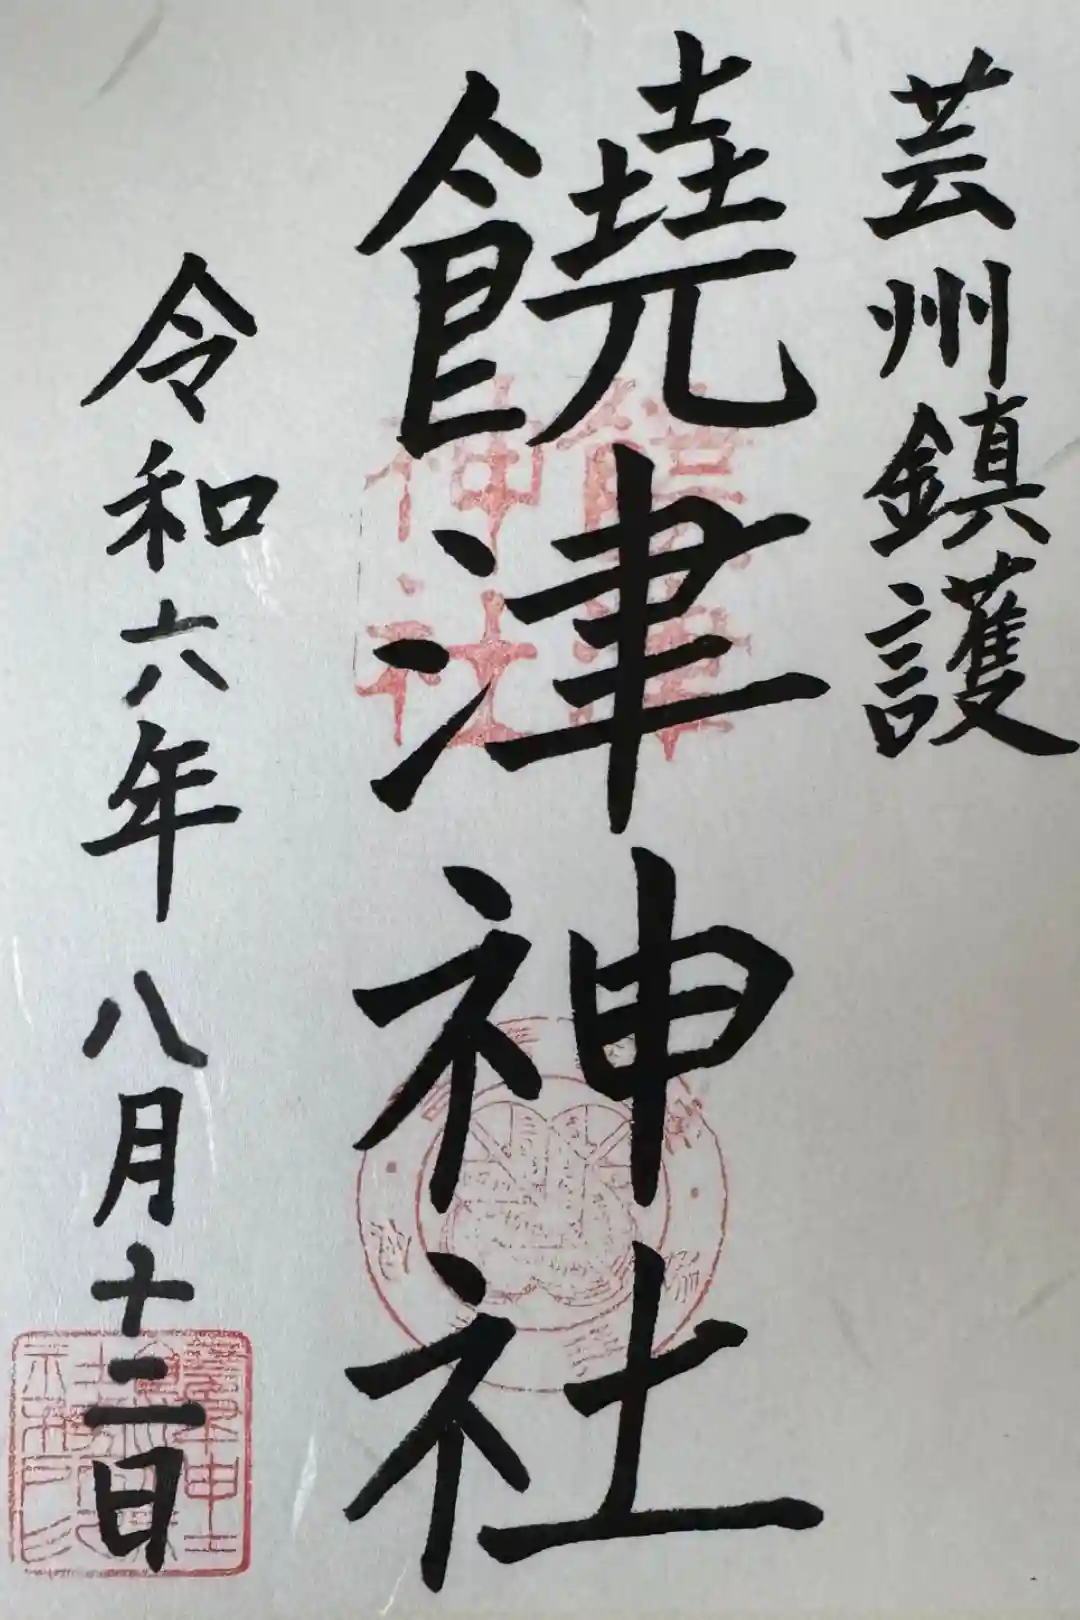 芸州鎮護
饒津神社
令和六年八月十二日
饒津
神社